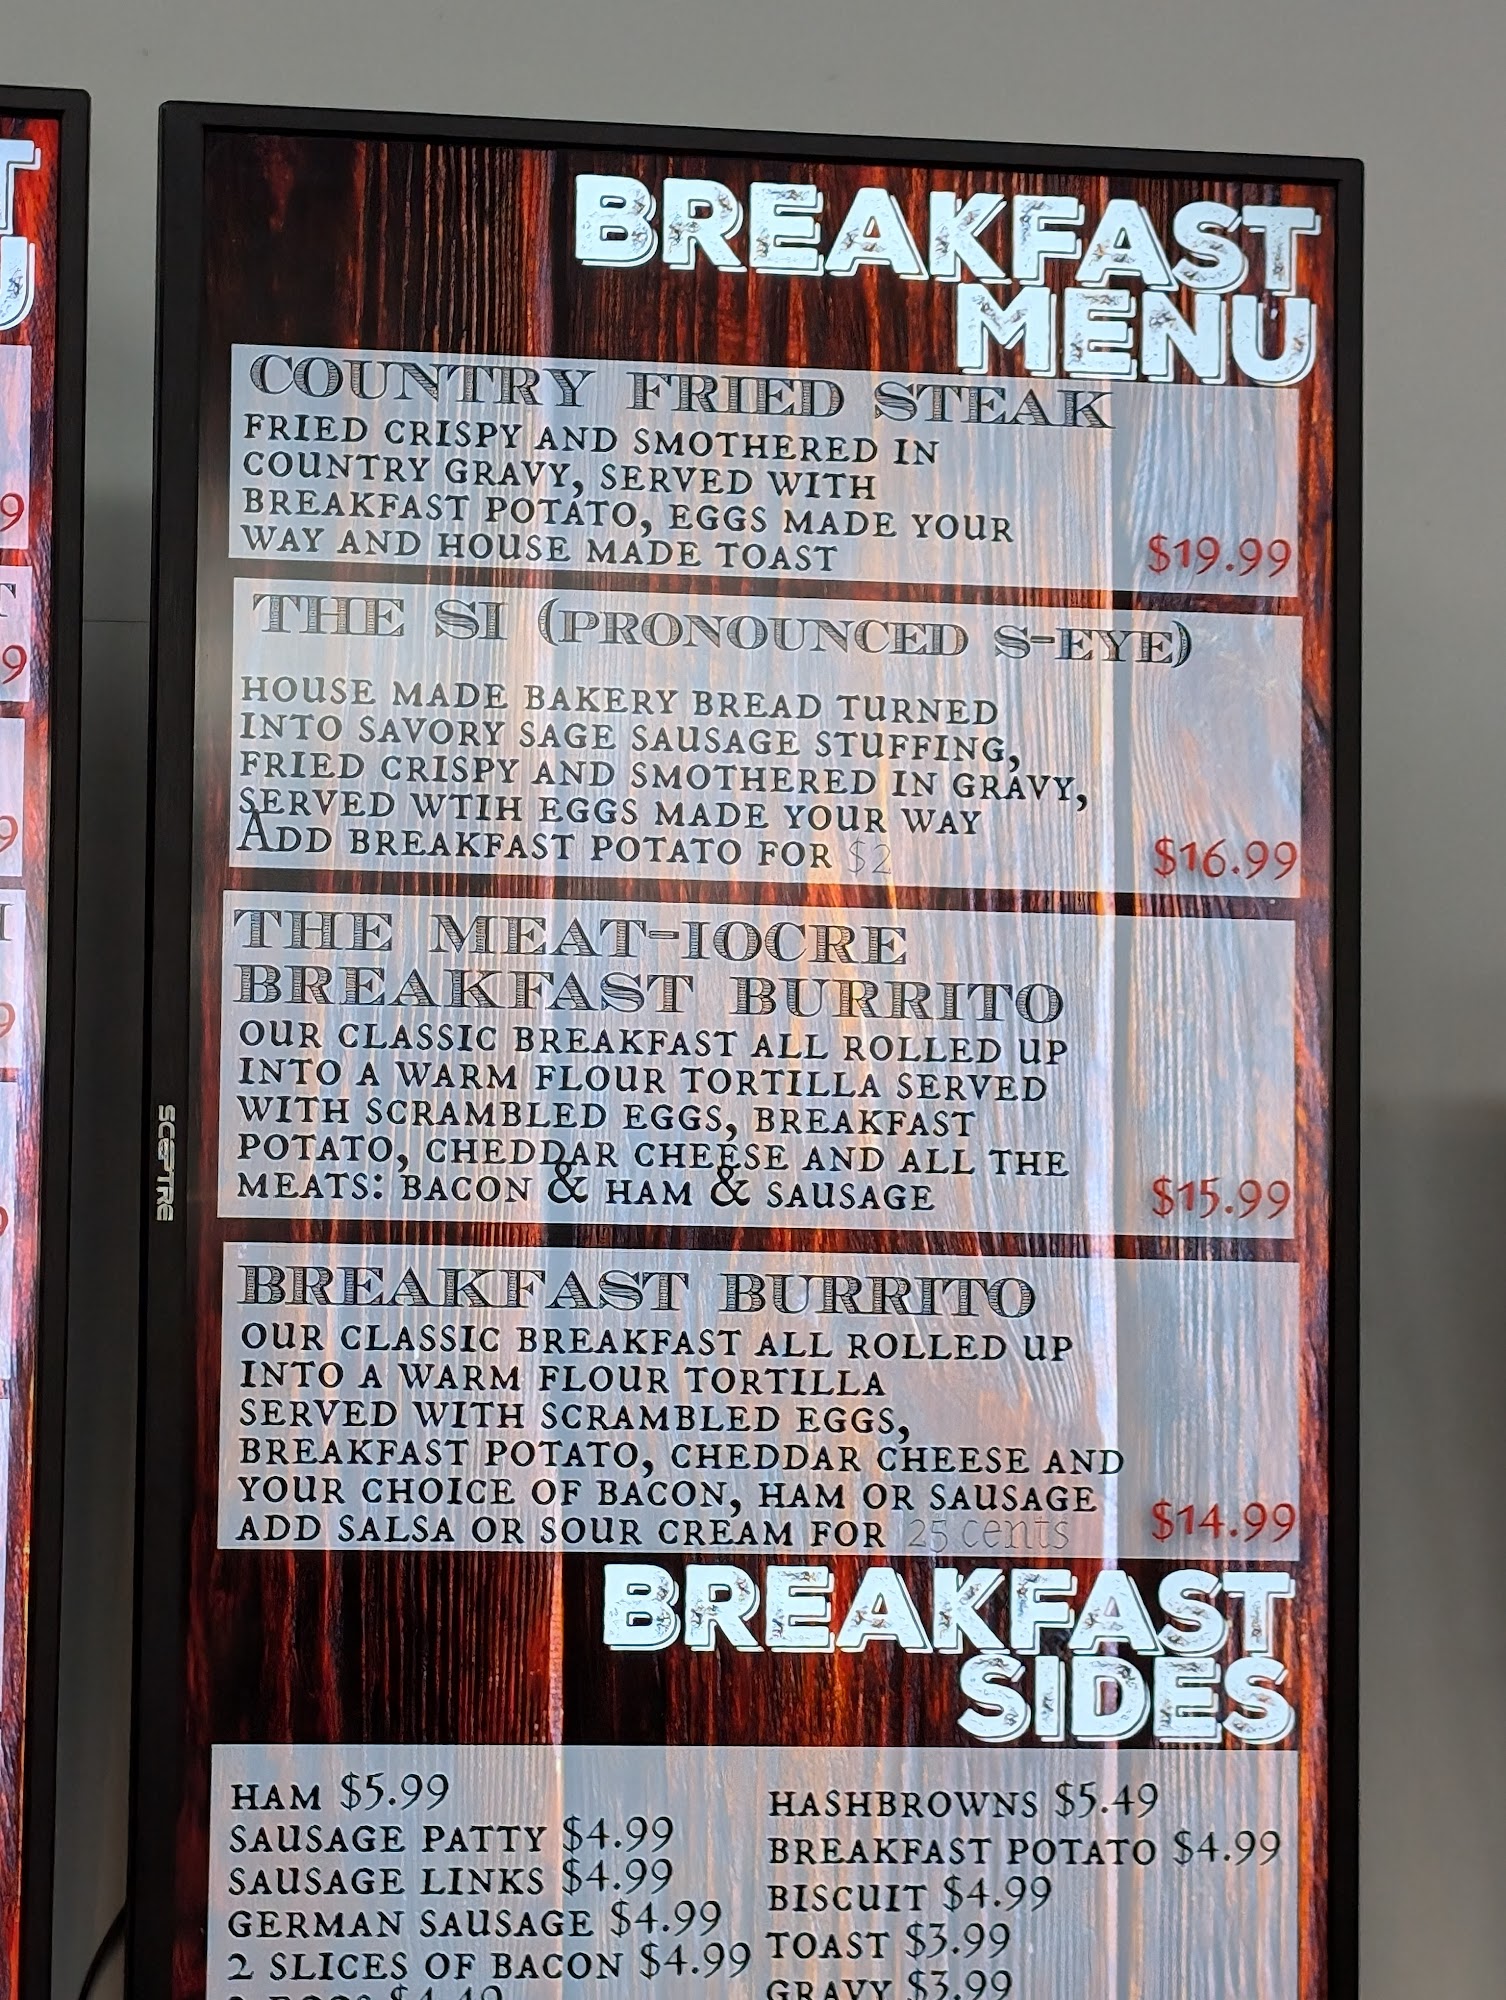 BREAKFAST
MENU
COUNTRY FRIED STEAK
FRIED CRISPY AND SMOTHERED IN
COUNTRY GRAVY, SERVED WITH
BREAKFAST POTATO, EGGS MADE YOUR
WAY AND HOUSE MADE TOAST
$19.99
THE SI (PRONOUNCED S-EYE)
HOUSE MADE BAKERY BREAD TURNED
INTO SAVORY SAGE SAUSAGE STUFFING,
FRIED CRISPY AND SMOTHERED IN GRAVY,
SERVED WTIH EGGS MADE YOUR WAY
ADD BREAKFAST POTATO FOR $2
$16.99
THE MEAT-IOCRE
BREAKFAST BURRITO
OUR CLASSIC BREAKFAST ALL ROLLED UP
INTO A WARM FLOUR TORTILLA SERVED
WITH SCRAMBLED EGGS, BREAKFAST
POTATO, CHEDDAR CHEESE AND ALL THE
MEATS: BACON & HAM & SAUSAGE
$15.99
BREAKFAST BURRITO
OUR CLASSIC BREAKFAST ALL ROLLED UP
INTO A WARM FLOUR TORTILLA
SERVED WITH SCRAMBLED EGGS,
BREAKFAST POTATO, CHEDDAR CHEESE AND
YOUR CHOICE OF BACON, HAM OR SAUSAGE
ADD SALSA OR SOUR CREAM FOR 25 cents
$14.99
BREAKFAST
SIDES
HAM $5.99
SAUSAGE PATTY $4.99
SAUSAGE LINKS $4.99
GERMAN SAUSAGE $4.99
2 SLICES OF BACON $4.99
HASHBROWNS $5.49
BREAKFAST POTATO $4.99
BISCUIT $4.99
TOAST $3.99
GRAVY $3.99
SCEPTRE